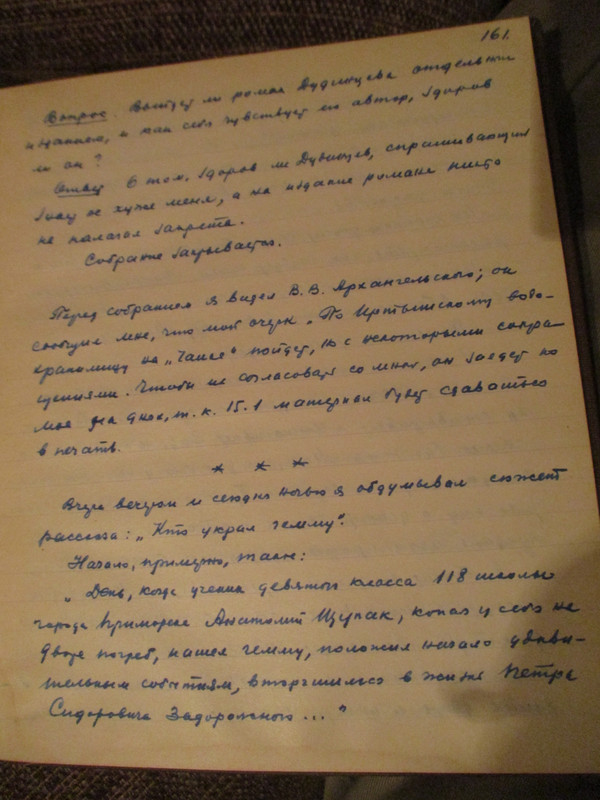 161.
Вопрос. Выйдет ли роман Дудинцева отдельным
изданием, и как себя чувствует его автор, здоров
ли он?
Ответ О том, здоров ли Дудинцев, спрашивающий
знает не хуже меня, а на издание романа никто
не налагал запрета.
Собрание закрывается.
Перед собранием я видел В. В. Архангельского; он
сообщил мне, что мой очерк „По Иртышскому водо-
хранилищу на „Чайке" пойдет, но с некоторыми сокра-
щениями. Чтобы их согласовать со мной, он заедет ко
мне на днях, т. к. 15.I материал будет сдаваться
в печать.
* * *
Вчера вечером и сегодня ночью я обдумывал сюжет
рассказа: „Кто украл гемму".
Начало, примерно, такое:
„День, когда ученик девятого класса 118 школы
города Приморска Анатолий Щупак, копая у себя на
дворе погреб, нашел гемму, положил начало удиви-
тельным событиям, вторгшимся в жизнь Петра
Сидоровича Задорожного..."